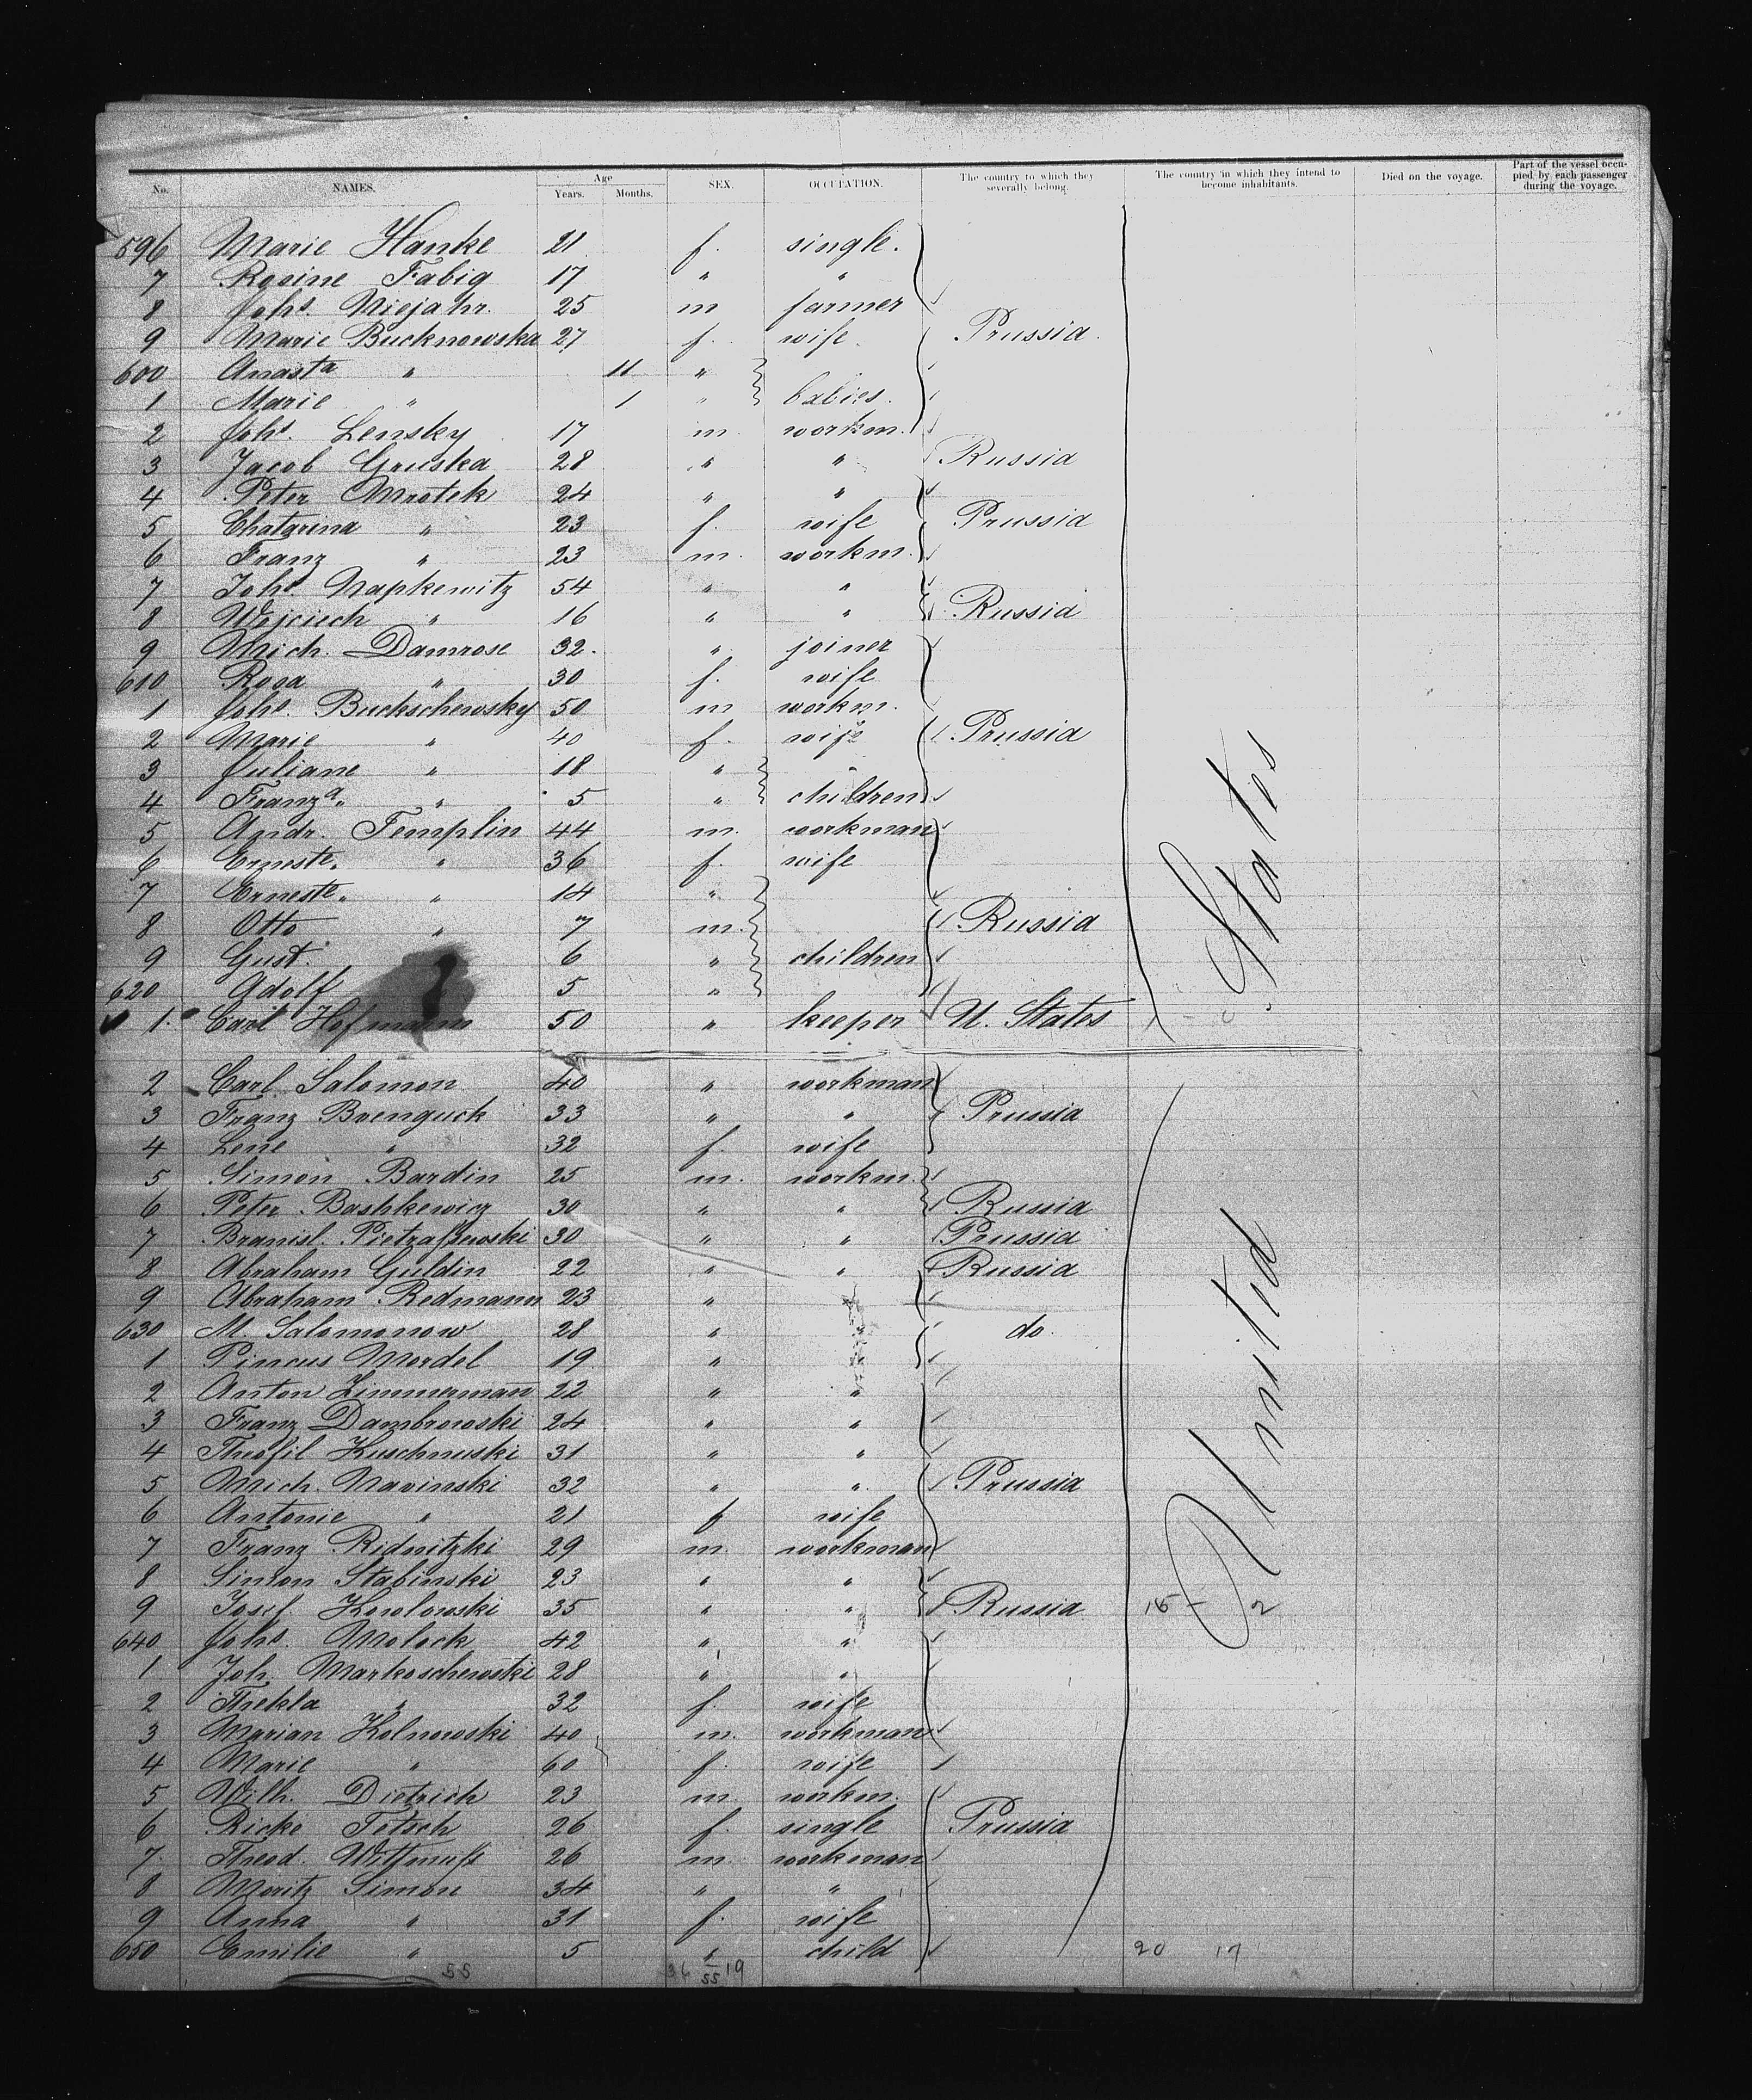 No. NAMES. Age Years. Months. SEX. OCCUPATION. The country to which they severally belong. The country in which they intend to become inhabitants. Died on the voyage. Part of the vessel occupied by each passenger during the voyage.
596 Marie Hanke 21 f. single.
7 Rosine Fabig 17 " "
8 Johs. Niejahr. 25 m farmer
9 Marie Bucknowska 27 f. wife. Prussia.
600 Anasta " 11 "
1 Marie " 1 " babies.
2 Johs. Lensky 17 m workm.
3 Jacob Gruska 28 " " Russia
4 Peter Mrotek 24 " "
5 Chatarina " 23 f. wife Prussia
6 Franz " 23 m. workm.
7 Johs. Napkewitz 54 " "
8 Wojciech " 16 " " Russia
9 Mich. Damrose 32. " joiner
610 Rosa " 30 f. wife
1 Johs. Buckschewsky 50 m workm.
2 Marie " 40 f. wife Prussia
3 Juliane " 18 "
4 Franza. " 5 " children
5 Andr. Templin 44 m. workman
6 Erneste. " 36 f. wife
7 Erneste. " 14 "
8 Otto " 7 m. Russia
9 Gust. 6 " children
620 Adolf 5 "
1. Carl Hofmann 50 " keeper U. States
2 Carl Salomon 40 " workman
3 Franz Brenguck 33 " " Prussia
4 Lene " 32 f. wife
5 Simon Bardin 25 m. workm.
6 Peter Bashkewicz 30 " " Russia
7 Branisl. 30 " " Prussia
8 Abraham Guldin 22 " " Russia
9 Abraham Redmann 23 " "
630 M. Salomonow 28 " " do.
1 Pincus Mordel 19 " "
2 Anton Zimmermann 22 " "
3 Franz Dambrowski 24 " "
4 Theofil Kuschnuski 31 " "
5 Mich. Navinski 32 " " Prussia
6 Antonie " 21 f wife
7 Franz Ridnitzki 29 m. workman
8 Simon Stabinski 23 " "
9 Josef Kowlowski 35 " " Russia 15 - 2
640 Johs. Molock 42 " "
1 Joh. Markoschewski 28 " "
2 Thekla " 32 f. wife
3 Marian Kolnowski 40 m. workman
4 Marie " 60 f. wife
5 Wilh. Dietrich 23 m. workm.
6 Ricke Fetsch 26 f. single Prussia
7 Theod. 26 m workman
8 Moritz Simon 34 " "
9 Anna " 31 f. wife
650 Emilie " 5 " child 20 17
55 36 55 19
United States